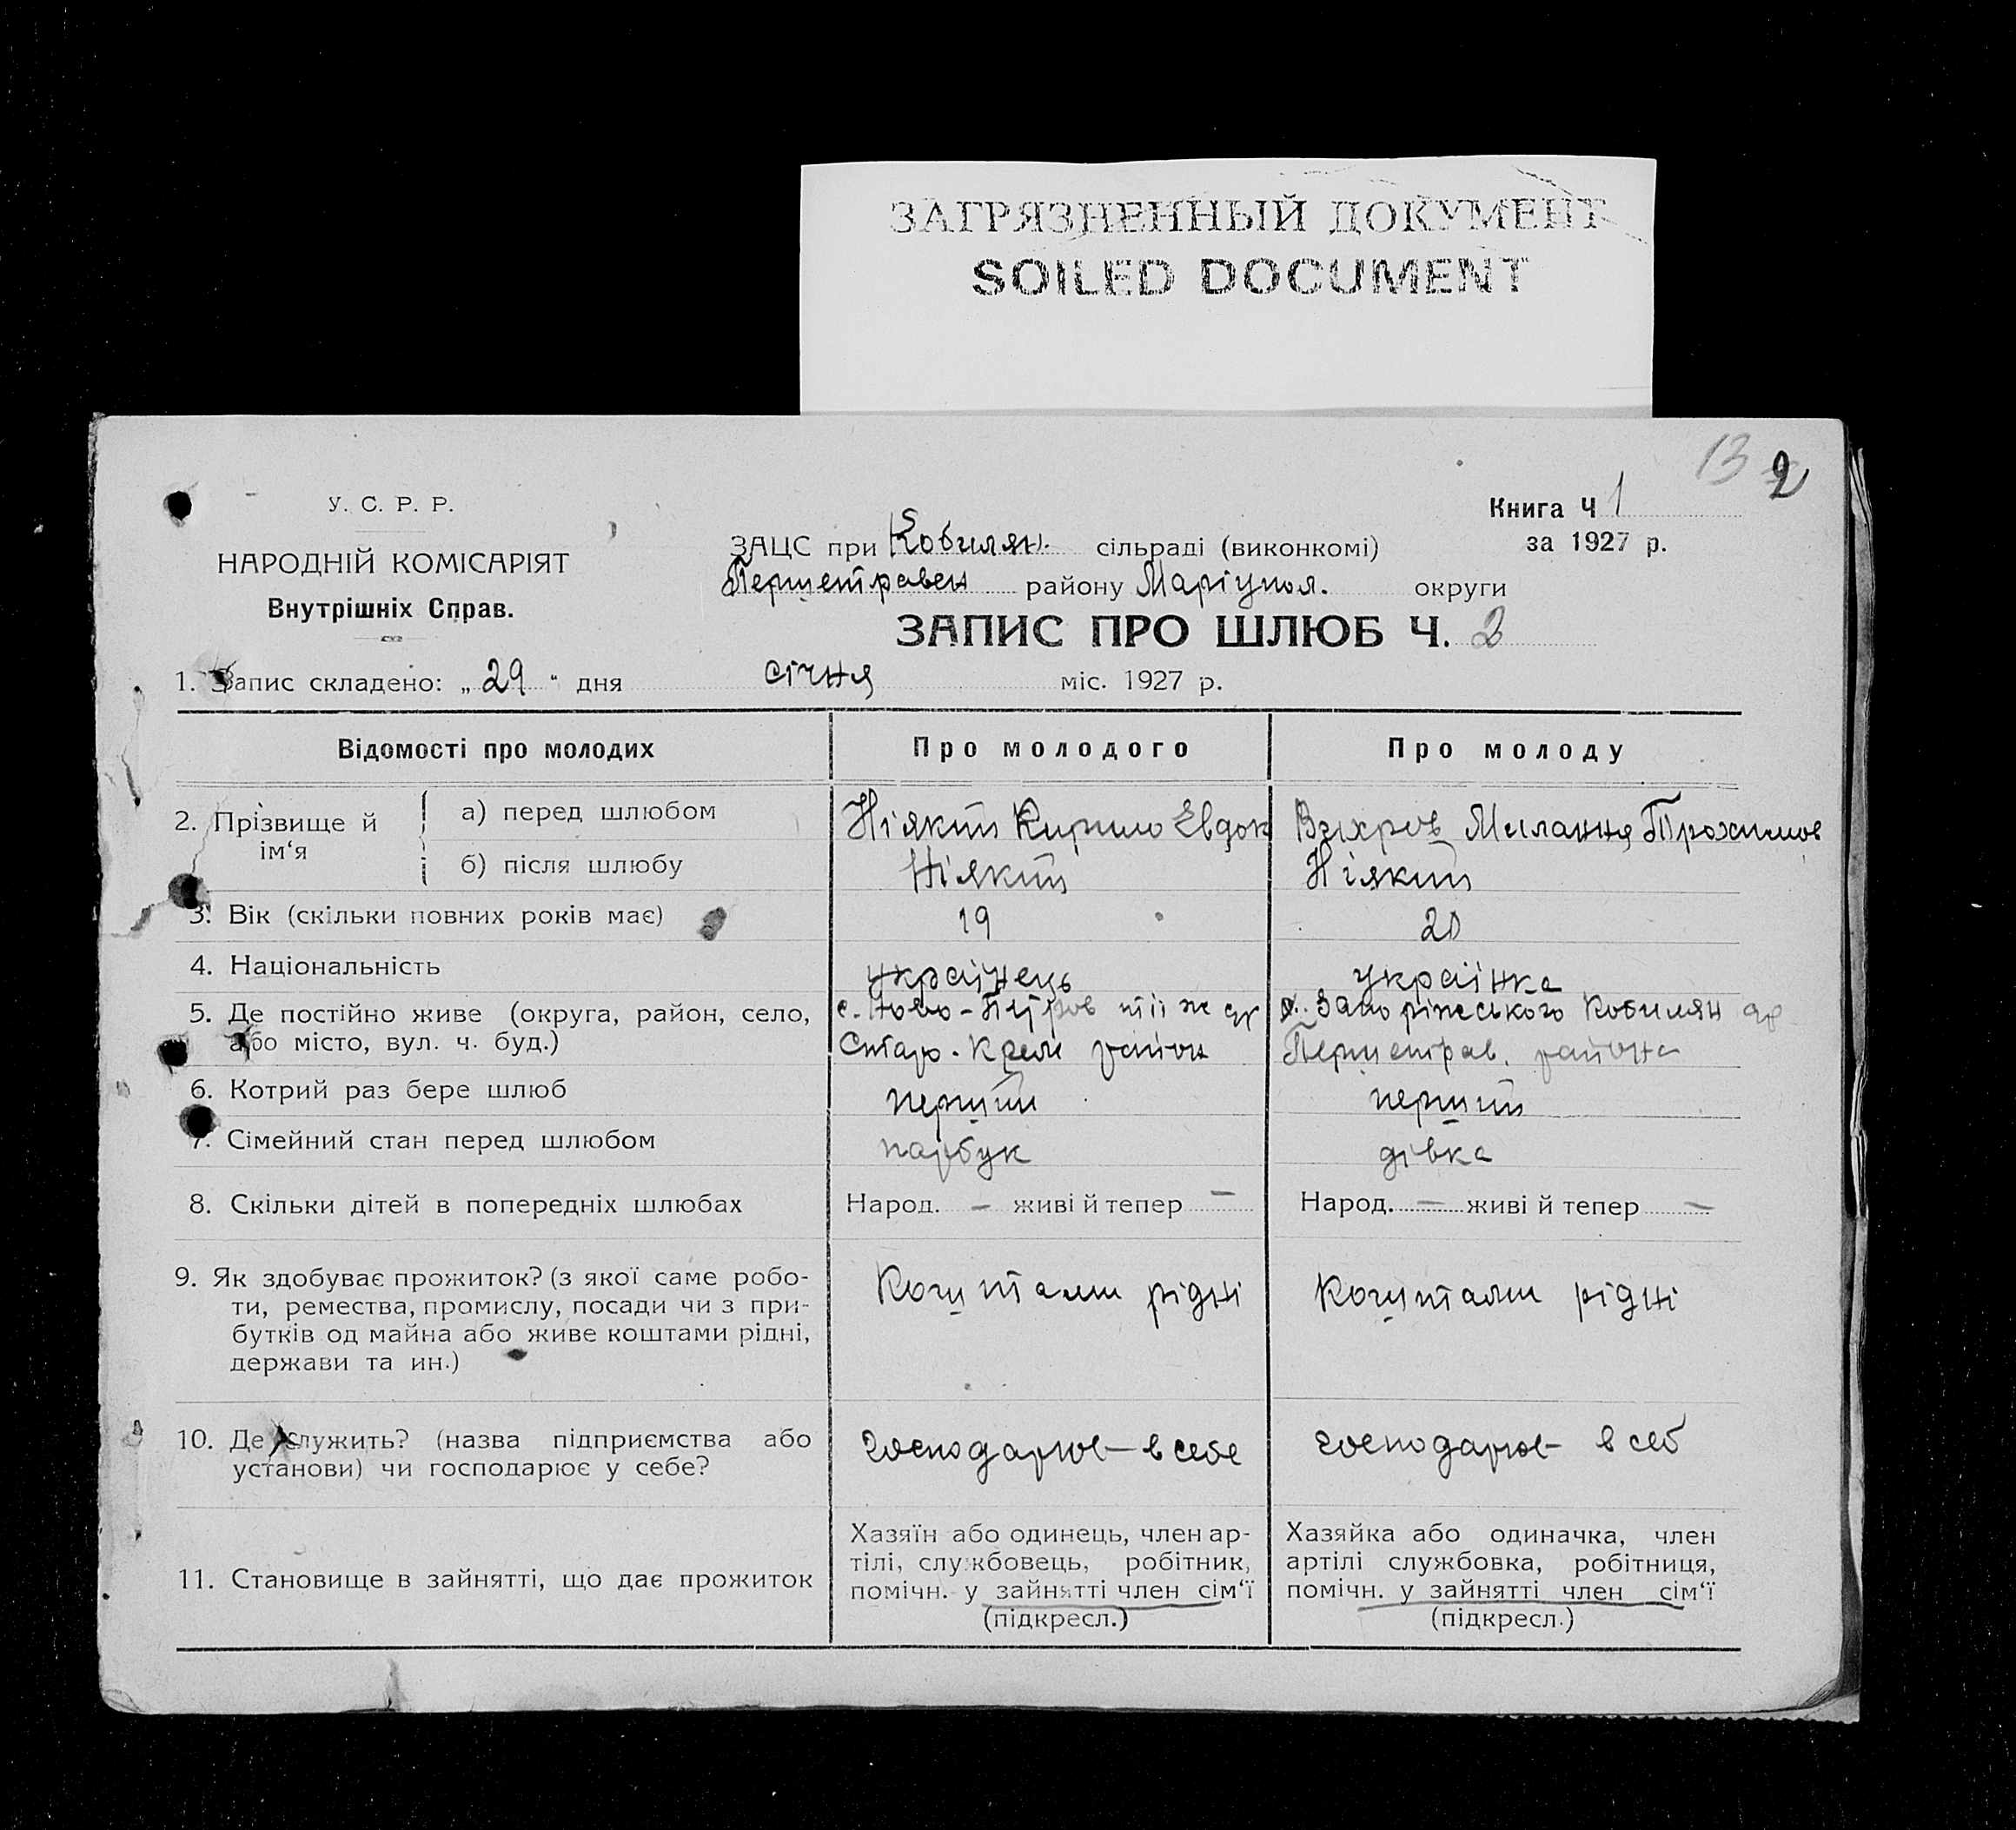 ЗАГРЯЗНЕННЫЙ ДОКУМЕНТ
SOILED DOCUMENT
13 2
У. С. Р. Р.
НАРОДНІЙ КОМІСАРІЯТ
Внутрішніх Справ.
Книга Ч 1
за 1927 р.
ЗАЦС при Кобилян. сільраді (виконкомі)
Першетравен району Маріупол. округи
ЗАПИС ПРО ШЛЮБ Ч. 2
1. Запис складено: „ 29 " дня січня міс. 1927 р.
Відомості про молодих Про молодого Про молоду
2. Прізвище й ім'я
а) перед шлюбом Ніякий Кирило Евдок Выхров Милання Трохимов
б) після шлюбу Ніякий Ніякий
3. Вік (скільки повних років має) 19 20
4. Національність українець українка
5. Де постійно живе (округа, район, село, с. Ново-Петров тії ж Запоріжського Кобилян
або місто, вул. ч. буд.) Старо-Крем район Першетрав. района
6. Котрий раз бере шлюб перший перший
7. Сімейний стан перед шлюбом парубук дівка
8. Скільки дітей в попередніх шлюбах Народ. – живі й тепер – Народ. – живі й тепер –
9. Як здобуває прожиток? (з якої саме робо- Коштами рідні Коштами рідні
ти, ремества, промислу, посади чи з при-
бутків од майна або живе коштами рідні,
держави та ин.)
10. Де служить? (назва підприємства або господарює в себе господарює в себ
установи) чи господарює у себе?
11. Становище в зайнятті, що дає прожиток
Хазяїн або одинець, член ар-
тілі, службовець, робітник,
помічн. у зайнятті член сім'ї
(підкресл.)
Хазяйка або одиначка, член
артілі службовка, робітниця,
помічн. у зайнятті член сім'ї
(підкресл.)